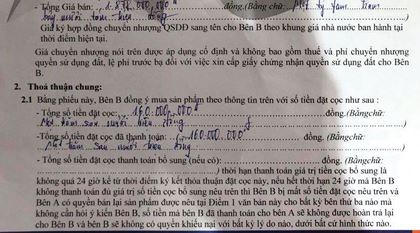 - Tổng Giá bán: 1.576.000.000 đồng. (Bằng chữ: Một tỷ năm trăm
bảy mươi sáu triệu đồng)
Giá ký hợp đồng chuyển nhượng QSDĐ sang tên cho Bên B theo khung giá nhà nước ban hành tại
thời điểm hiện tại.
Giá chuyển nhượng nói trên được áp dụng cố định và không bao gồm thuế và phí chuyển nhượng
quyền sử dụng đất, lệ phí trước bạ đối với việc xin cấp giấy chứng nhận quyền sử dụng đất cho Bên
B.
2. Thỏa thuận chung:
2.1 Bằng phiếu này, Bên B đồng ý mua sản phẩm theo thông tin trên với số tiền đặt cọc như sau :
- Tổng số tiền đặt cọc: 160.000.000 đồng. (Bằngchữ:
Một trăm sáu mươi triệu đồng
-Tổng số tiền đặt cọc đã thanh toán: 160.000.000 đồng. (Bằngchữ:
Một trăm sáu mươi triệu đồng
- Tổng số tiền đặt cọc thanh toán bổ sung (nếu có): đồng. (Bằngchữ:
) thời hạn thanh toán giá trị tiền cọc bổ sung là
không quá 24 giờ kể từ thời điểm ký kết thỏa thuận đặt cọc này, nếu hết thời hạn 24 giờ mà Bên B
không thanh toán đủ giá trị số tiền cọc bổ sung nêu trên thì Bên B bị mất số tiền đặt cọc nêu trên và
Bên A có quyền bán lại sản phẩm được nêu tại Điểm 1 văn bản này cho bất kỳ bên thứ ba nào mà
không cần hỏi ý kiến Bên B, số tiền mà bên B đã thanh toán cho bên A sẽ không được hoàn trả lại
cho Bên B và bên B sẽ không có quyền khiếu nại với bất kỳ lý do nào, dưới bất cứ hình thức nào.